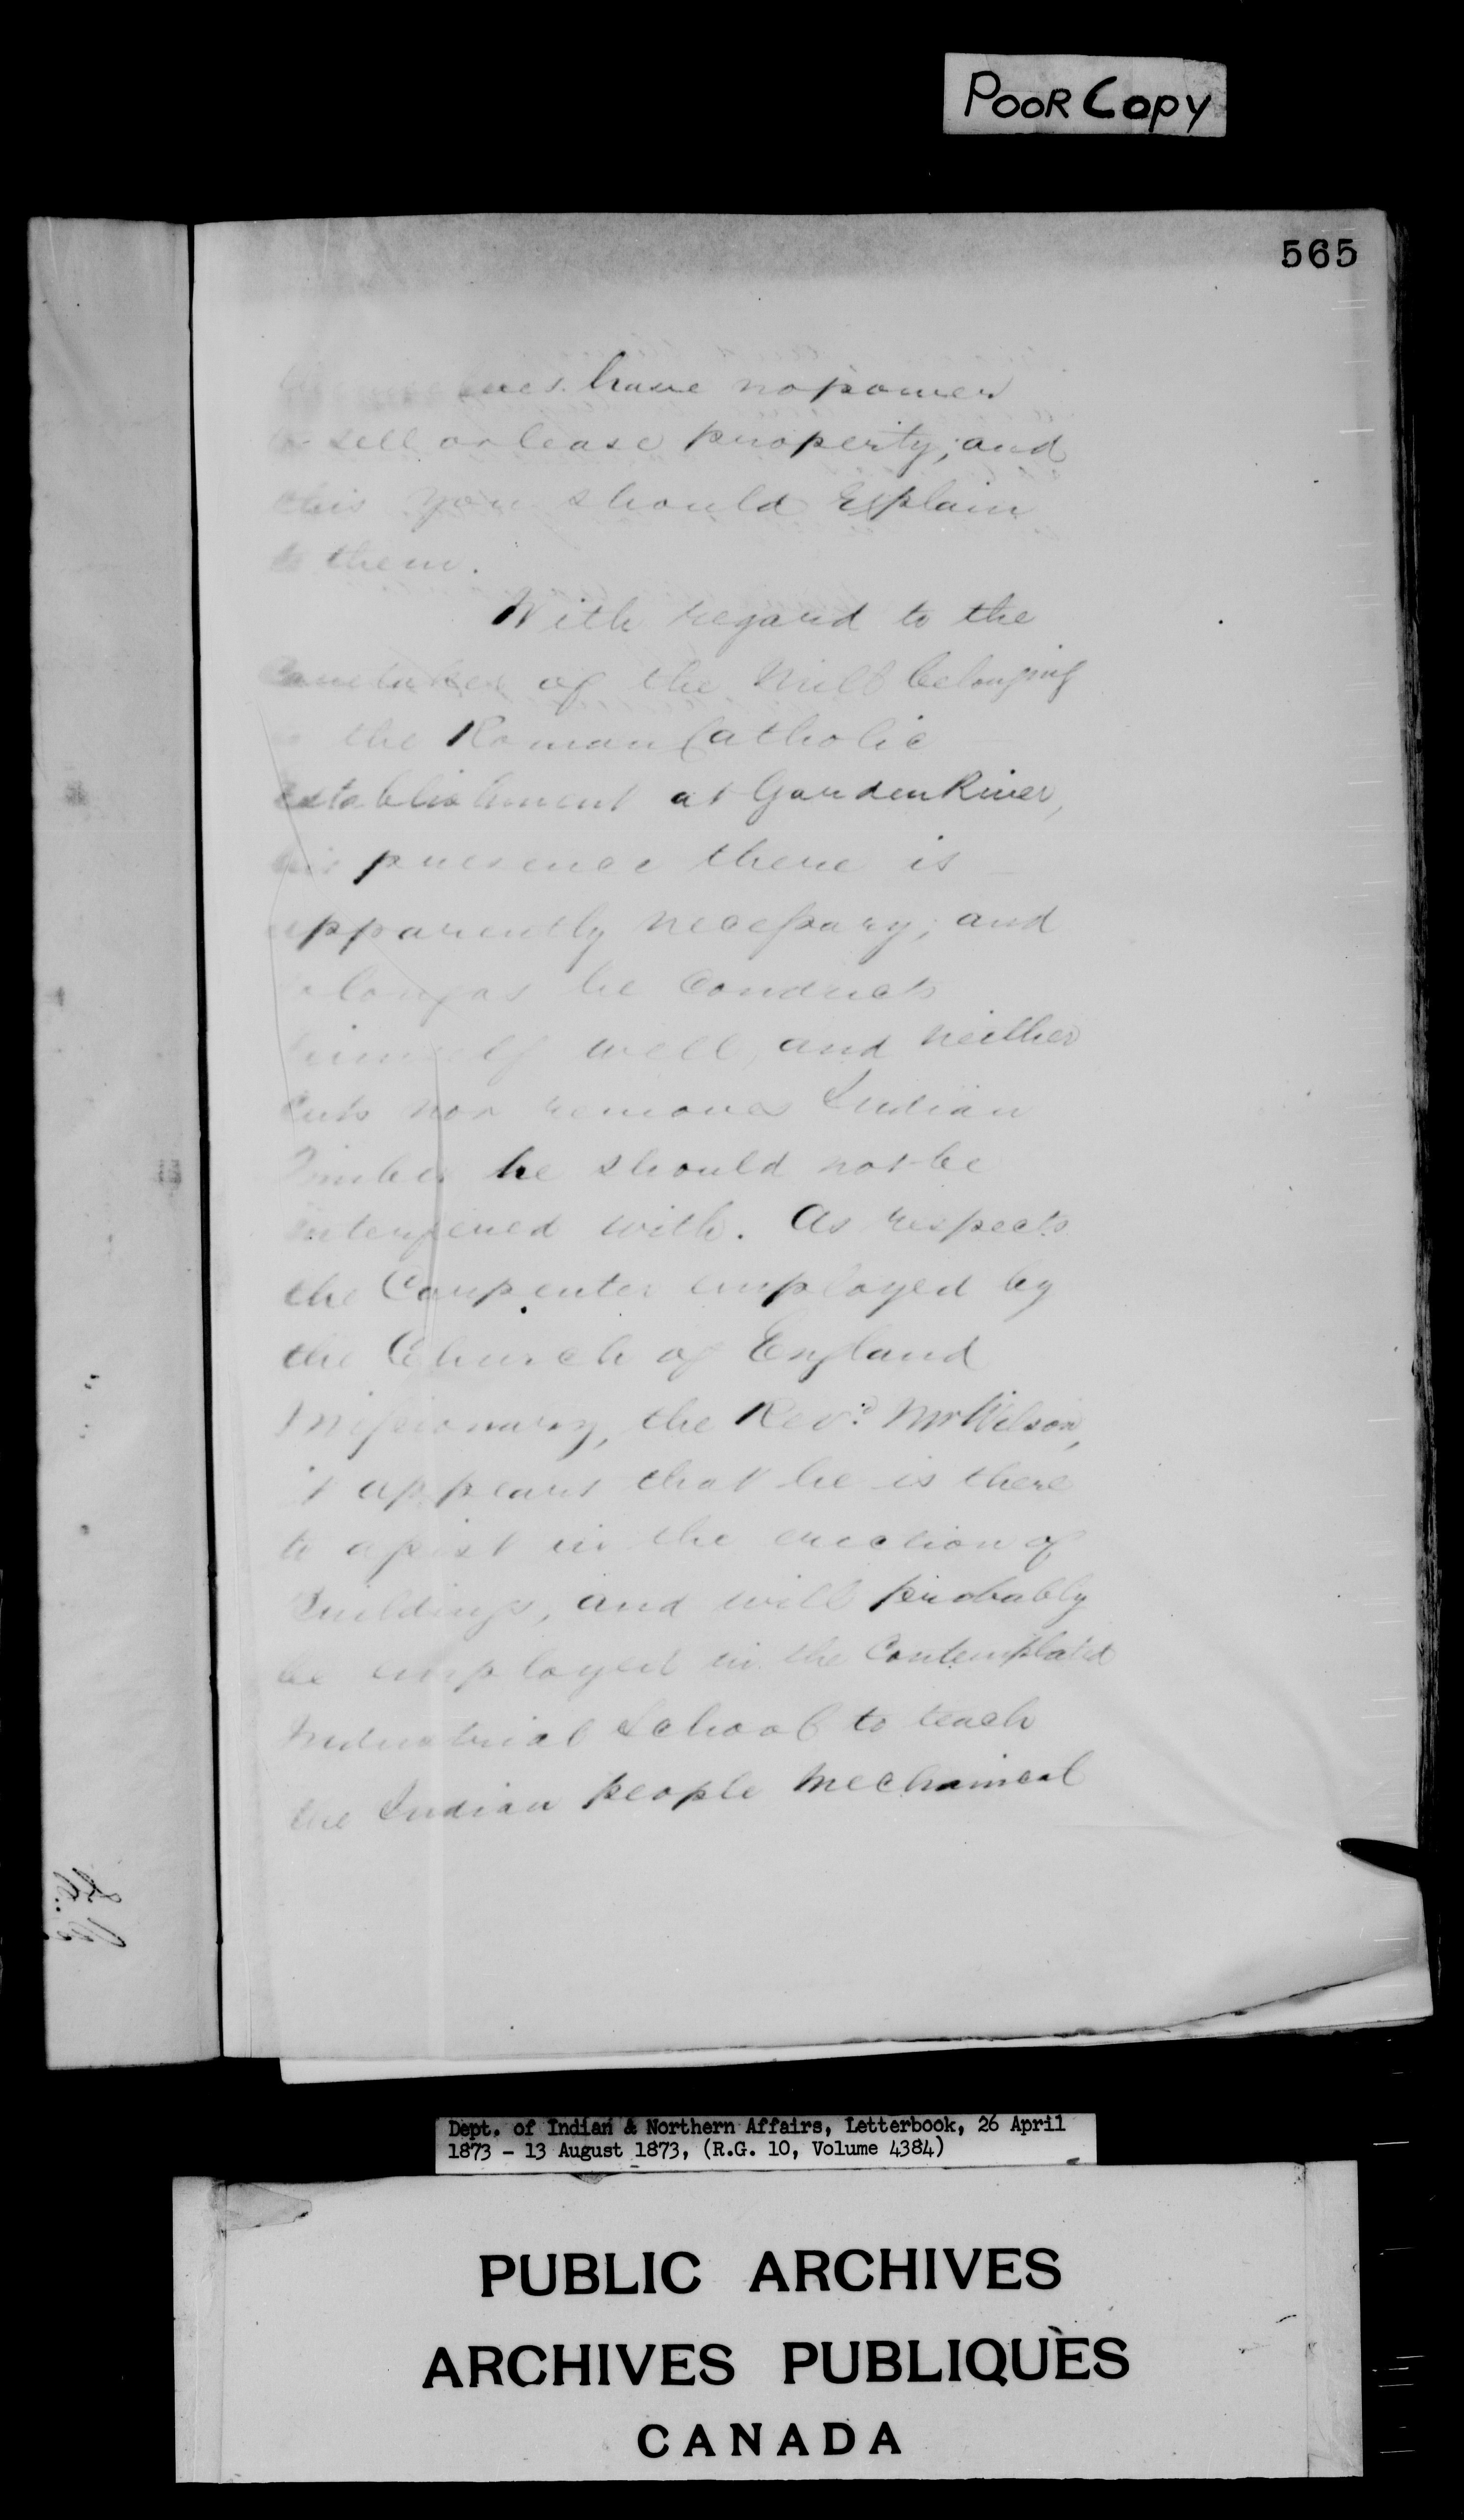 POOR Copy
565
have no power
to sell or lease property; and
this you should Explain
to them.
With regard to the
Caretaker of the Mill belonging
the Roman Catholic
establishment at Garden River,
his presence there is
apparently necessary; and
long as he Conducts
himself well, and neither
Cuts nor removes Indian
Timber he should not be
interfered with. As respects
the Carpenter employed by
the Church of England
Missionary, the Revd. Mr Wilson,
it appears that he is there
to assist in the erection of
Buildings, and will probably
be employed in the Contemplated
Industrial School to teach
the Indian people Mechanical
Dept. of Indian & Northern Affairs, Letterbook, 26 April
1873 - 13 August 1873, (R.G. 10, Volume 4384)
PUBLIC ARCHIVES
ARCHIVES PUBLIQUES
CANADA